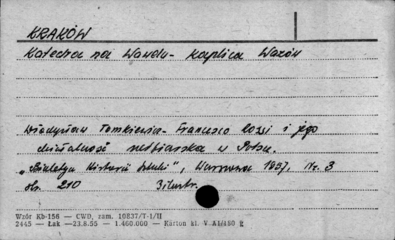 KRAKÓW
Katedra na Wawelu - kaplica Wazów
Władysław Tomkiewicz - Francesco Rossi i jego
działalność rzeźbiarska w Polsce.
„Biuletyn Historii Sztuki", Warszawa 1957, Nr. 3
str. 210 3 ilustr.
Wzór Kb-156 — CWD, zam. 10837/T-1/II
2445 — Łak —23.8.55 — 1.460.000 — Karton kl. V A1/180 g